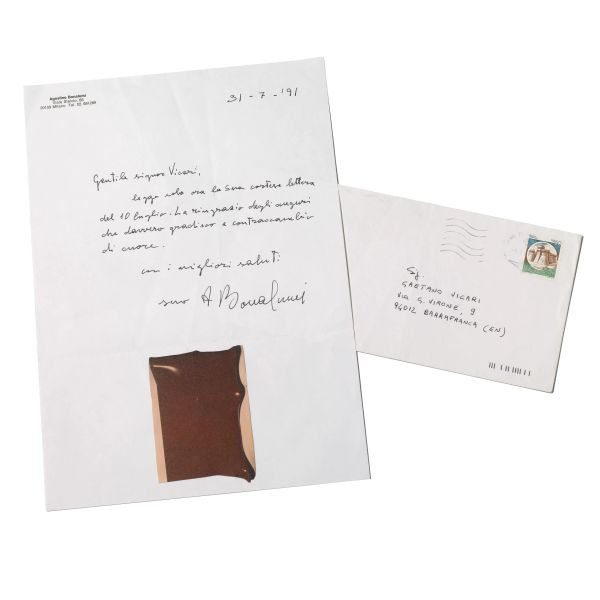 Agostino Bonalumi
31 - 7 - '91
Gentile signor Vicari,
leggo solo ora la Sua cortese lettera
del 10 luglio. La ringrazio degli auguri
che davvero gradisco e contraccambio
di cuore.
con i migliori saluti
suo A Bonalumi
Sg.
GAETANO VICARI
VIA G. VIRONE, 9
94012 BARRAFRANCA (EN)